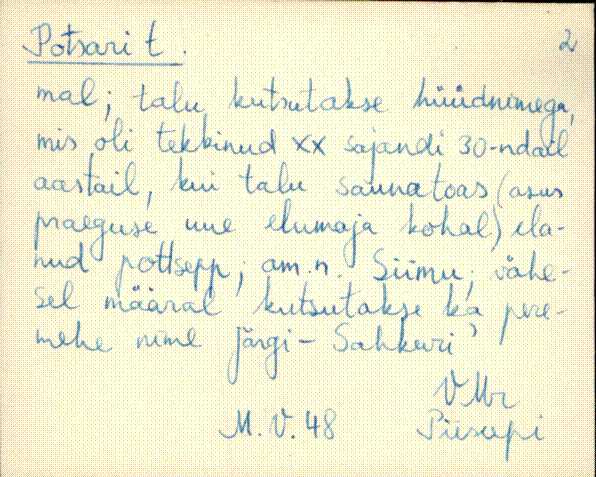 Potsari t. 2
mal; talu kutsutakse hüüdnimega,
mis oli tekkinud XX sajandi 30-ndail
aastail, kui talu saunatoas (asus
praeguse uue elumaja kohal) ela-
nud pottsepp; am.n. Siimu; vähe-
sel määral kutsutakse ka pere-
mehe nime järgi - Sahkari
VMr
M.V. 48 Piirsapi